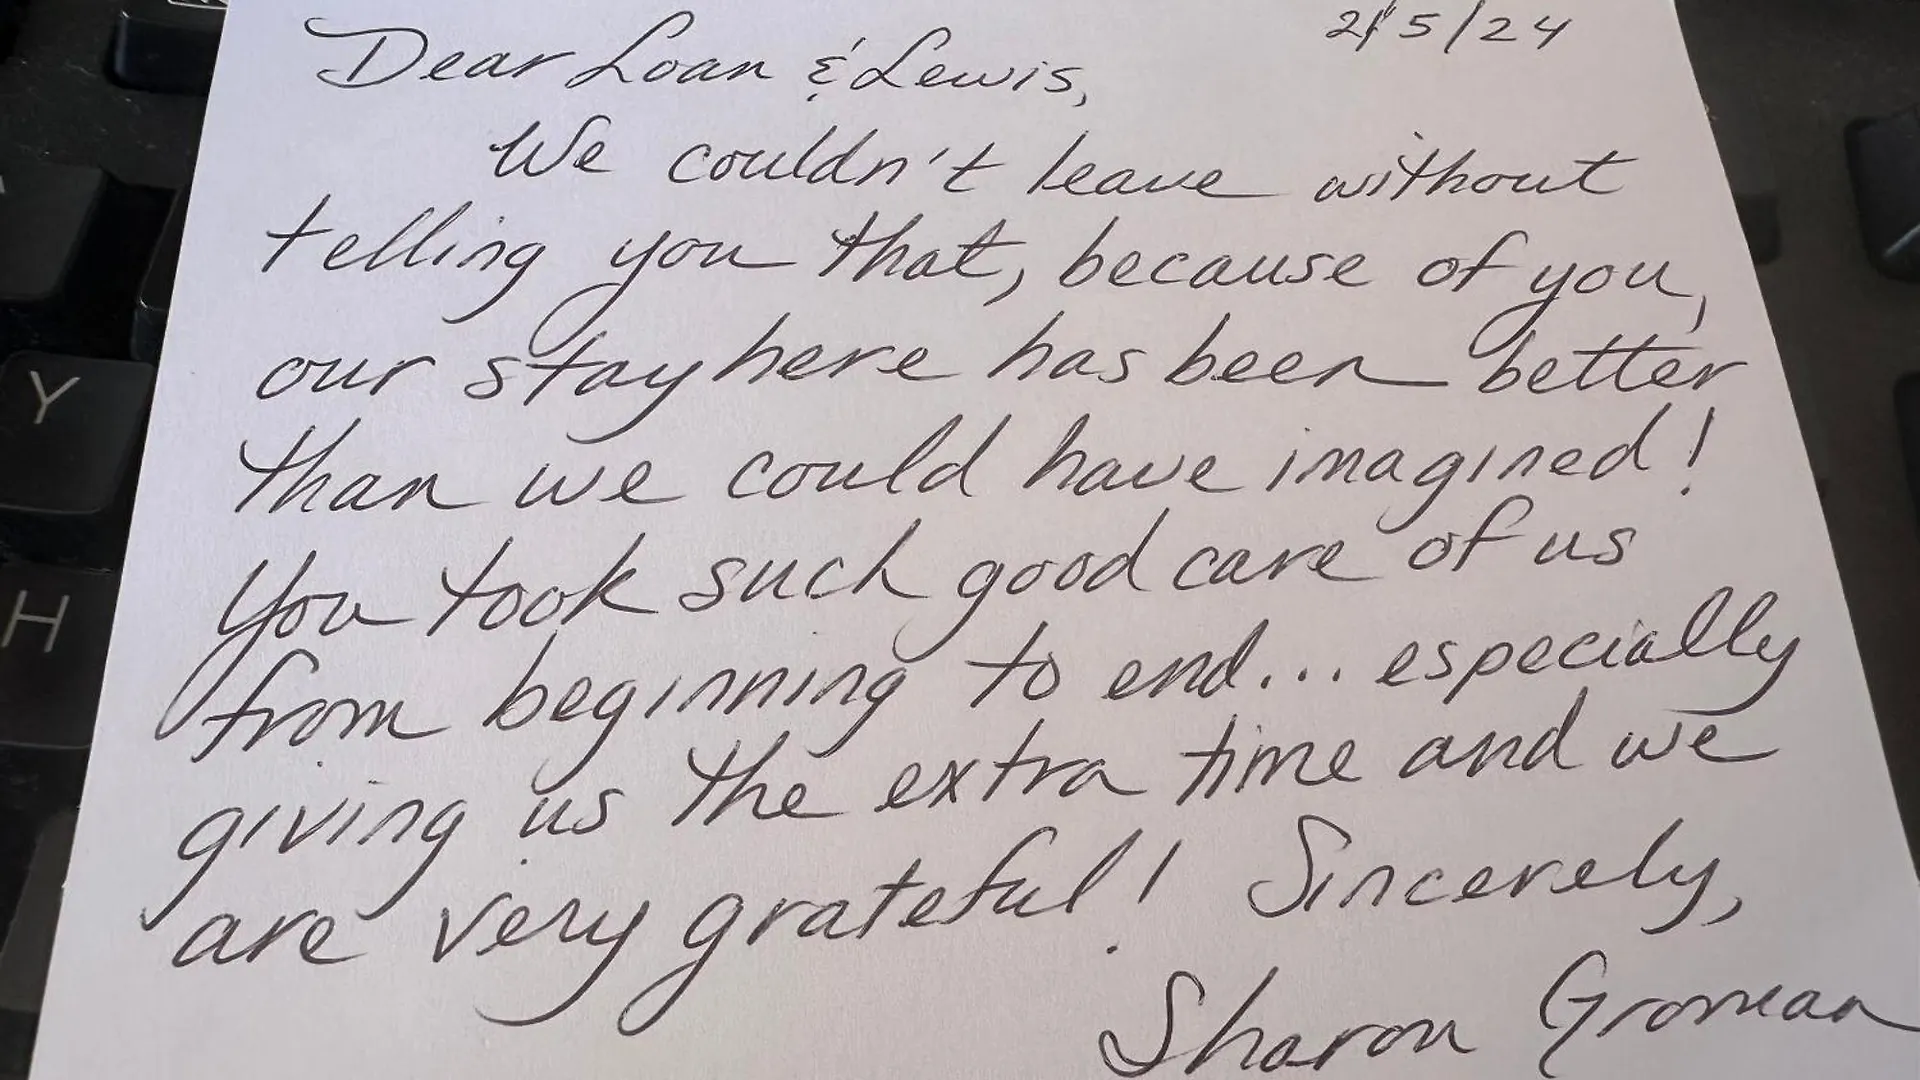 2/5/24
Dear Loan & Lewis,
We couldn't leave without
telling you that, because of you,
our stay here has been better
than we could have imagined!
You took such good care of us
from beginning to end... especially
giving us the extra time and we
are very grateful! Sincerely,
Sharon Groman
Y
H